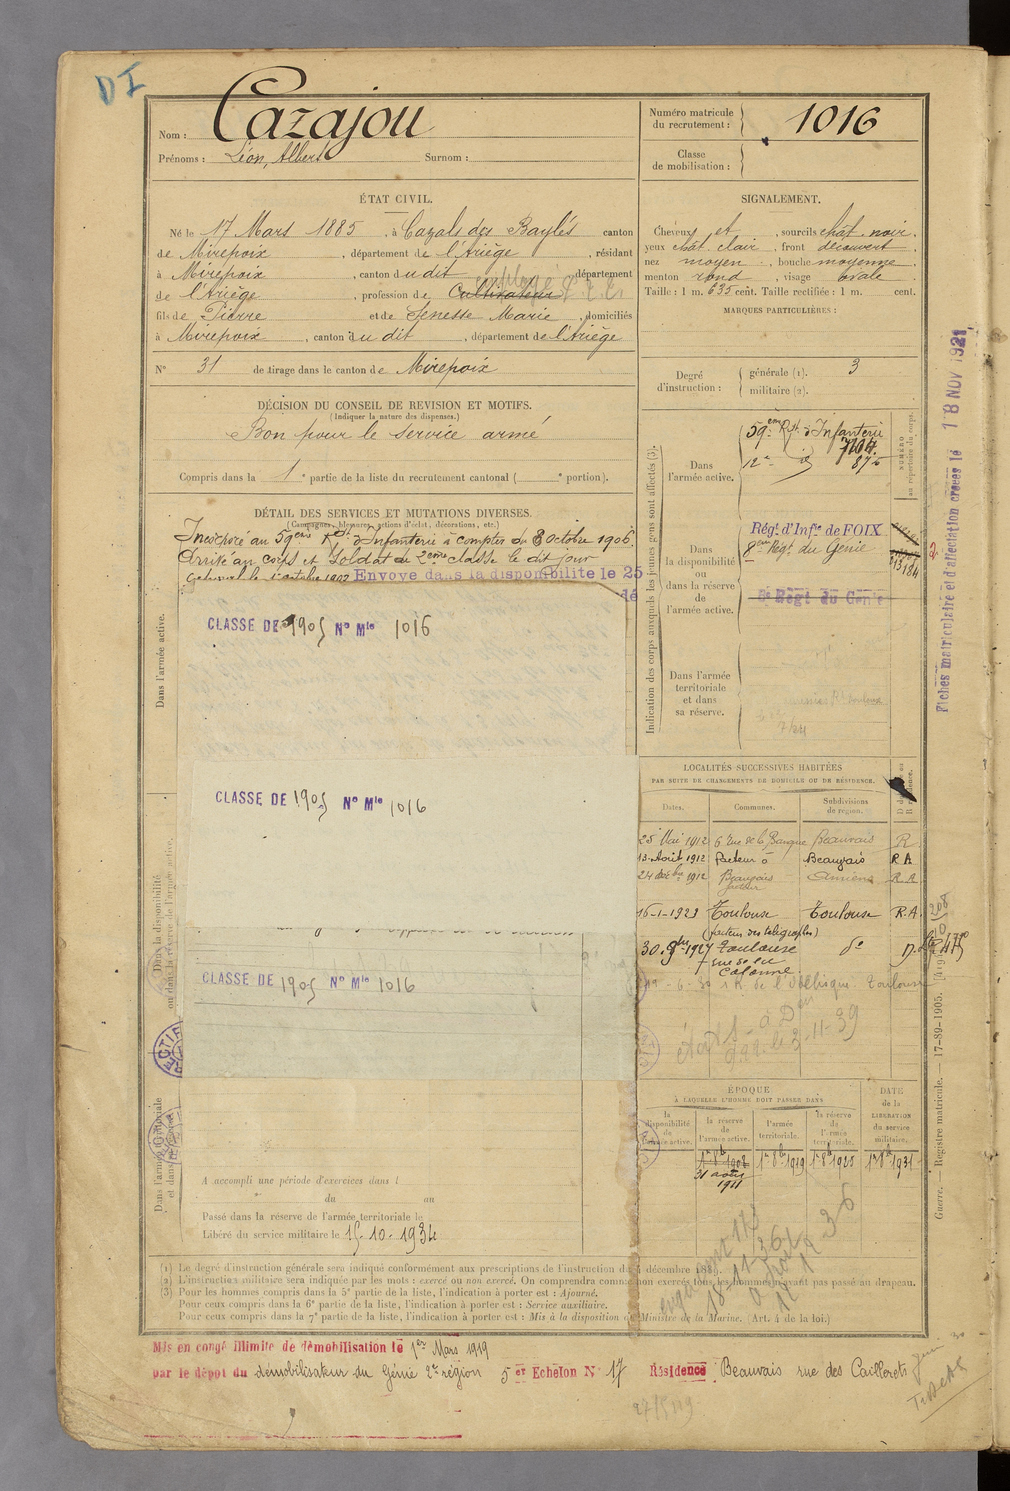 DI
Nom : Cazajou
Prénoms : Léon, Albert Surnom :
Numéro matricule du recrutement : 1016
Classe de mobilisation :
ÉTAT CIVIL.
Né le 17 Mars 1885, à Cazals des Baylés canton
de Mirepoix, département de l'Ariège, résidant
à Mirepoix, canton du dit département
de l'Ariège, profession de Cultivateur employé P.T.T.
fils de Pierre et de Senesse Marie, domiciliés
à Mirepoix, canton du dit, département de l'Ariège
N° 31 de tirage dans le canton de Mirepoix
DÉCISION DU CONSEIL DE REVISION ET MOTIFS.
(Indiquer la nature des dispenses.)
Bon pour le service armé
Compris dans la 1e partie de la liste du recrutement cantonal ( e portion).
DÉTAIL DES SERVICES ET MUTATIONS DIVERSES.
(Campagnes, blessures, actions d'éclat, décorations, etc.)
Incorporé au 59ème Rgt d'Infanterie à compter du 8 octobre 1906.
Arrivé au corps et Soldat de 2eme classe le dit jour
Caporal le 1 octobre 1907 Envoyé dans la disponibilité le 25
CLASSE DE 1905 N° Mle 1016
CLASSE DE 1905 N° Mle 1016
CLASSE DE 1905 N° Mle 1016
Dans l'armée active.
Dans la disponibilité ou dans la réserve de l'armée active.
Dans l'armée territoriale et dans sa réserve.
A accompli une période d'exercices dans l
du au
Passé dans la réserve de l'armée territoriale le
Libéré du service militaire le 15-10-1934
SIGNALEMENT.
Cheveux et, sourcils chât. noir,
yeux chât. clair, front découvert,
nez moyen, bouche moyenne,
menton rond, visage ovale
Taille : 1 m. 635 cent. Taille rectifiée : 1 m. cent.
MARQUES PARTICULIÈRES :
Degré d'instruction : générale (1). 3
militaire (2).
Indication des corps auxquels les jeunes gens sont affectés (3).
NUMÉRO au répertoire du corps.
Dans l'armée active.
59ème Rgt d'Infanterie
12e id 87
Dans la disponibilité ou dans la réserve de l'armée active.
Régt d'Infie de FOIX
8eme Régt du Génie
8e Régt du Génie
Dans l'armée territoriale et dans sa réserve.
Fiches matriculaire et d'affectation créées le 18 NOV 1921
LOCALITÉS SUCCESSIVES HABITÉES
PAR SUITE DE CHANGEMENTS DE DOMICILE OU DE RÉSIDENCE.
Dates. Communes. Subdivisions de région.
25 Mai 1912 6 rue de la Banque Beauvais R
13 Août 1912 facteur à Beauvais R A
24 décbre 1912 Beauvais facteur Amiens R.A
16-1-1923 Toulouse Toulouse R.A.
(facteur des télégraphes)
30. 9bre 1927 Toulouse do D.
Colonne
Toulouse
ÉPOQUE
À LAQUELLE L'HOMME DOIT PASSER DANS
la disponibilité de l'armée active.
la réserve de l'armée active.
l'armée territoriale.
la réserve de l'armée territoriale.
DATE de la LIBÉRATION du service militaire.
1er 8b 1908 1er 8b 1919 1er 8b 1925 1er 8b 1931
31 août 1911
Guerre. — Registre matricule. — 17-89-1905.
(1) Le degré d'instruction générale sera indiqué conformément aux prescriptions de l'instruction du 4 décembre 1889.
(2) L'instruction militaire sera indiquée par les mots : exercé ou non exercé. On comprendra comme non exercés tous les hommes n'ayant pas passé au drapeau.
(3) Pour les hommes compris dans la 5e partie de la liste, l'indication à porter est : Ajourné.
Pour ceux compris dans la 6e partie de la liste, l'indication à porter est : Service auxiliaire.
Pour ceux compris dans la 7e partie de la liste, l'indication à porter est : Mis à la disposition du Ministre de la Marine. (Art. 4 de la loi.)
Mis en congé illimité de démobilisation le 1er Mars 1919
par le dépôt du démobilisateur du Génie 2e région 5 et Echelon N° 17 Résidence Beauvais rue des Caillerets